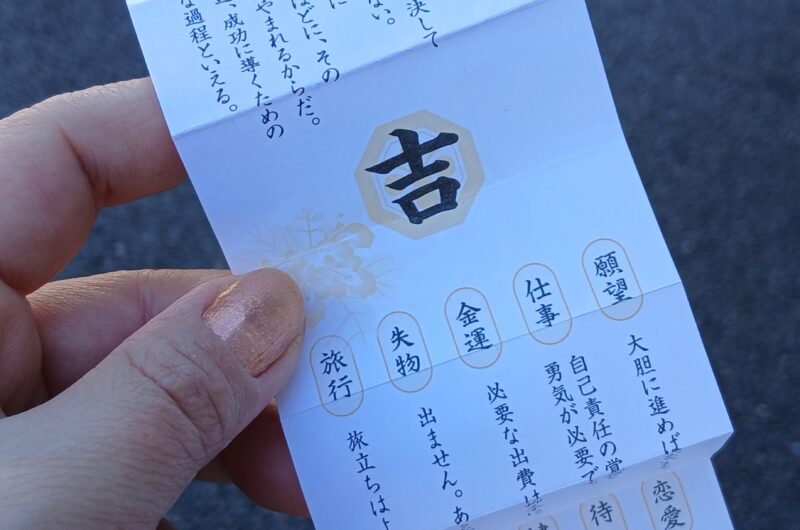 決して
ない。
に
ほどに、その
やまれるからだ。
、成功に導くための
な過程といえる。
吉
願望
大胆に進めば
仕事
自己責任の覚
勇気が必要で
金運
必要な出費は
失物
出ません。あ
旅行
旅立ちはよ
恋愛
待